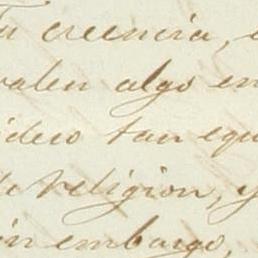 creencia,
valen algo en
ideas tan equ
la religion, y
sin embargo,